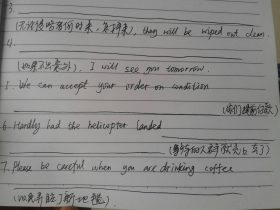 3.
(无论敌人何时来,怎样来), they will be wiped out clean.
4.
(如果不出意外), I will see you tomorrow.
5. We can accept your order on condition
(你们提前付款)
6. Hardly had the helicopter landed
(人)
7. Please be careful when you are drinking coffee
(以免弄脏了新地毯).